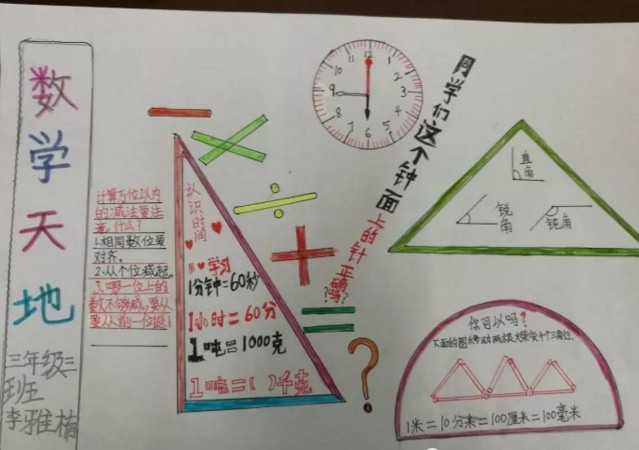 数学天地
三年级三班
李雅楠
计算万位以内
的减法要注
意什么?
1.相同数位要
对齐。
2.从个位减起。
3.哪一位上的
数不够减,要从
前一位退
认识时间
学习
1分钟=60秒
1小时=60分
1吨=1000克
1吨=( )千克
12
1
2
3
4
5
6
7
8
9
10
11
同学们这个钟面
上的针正确吗?
直角
锐角
钝角
你可以吗?
1米=10分米=100厘米=100毫米